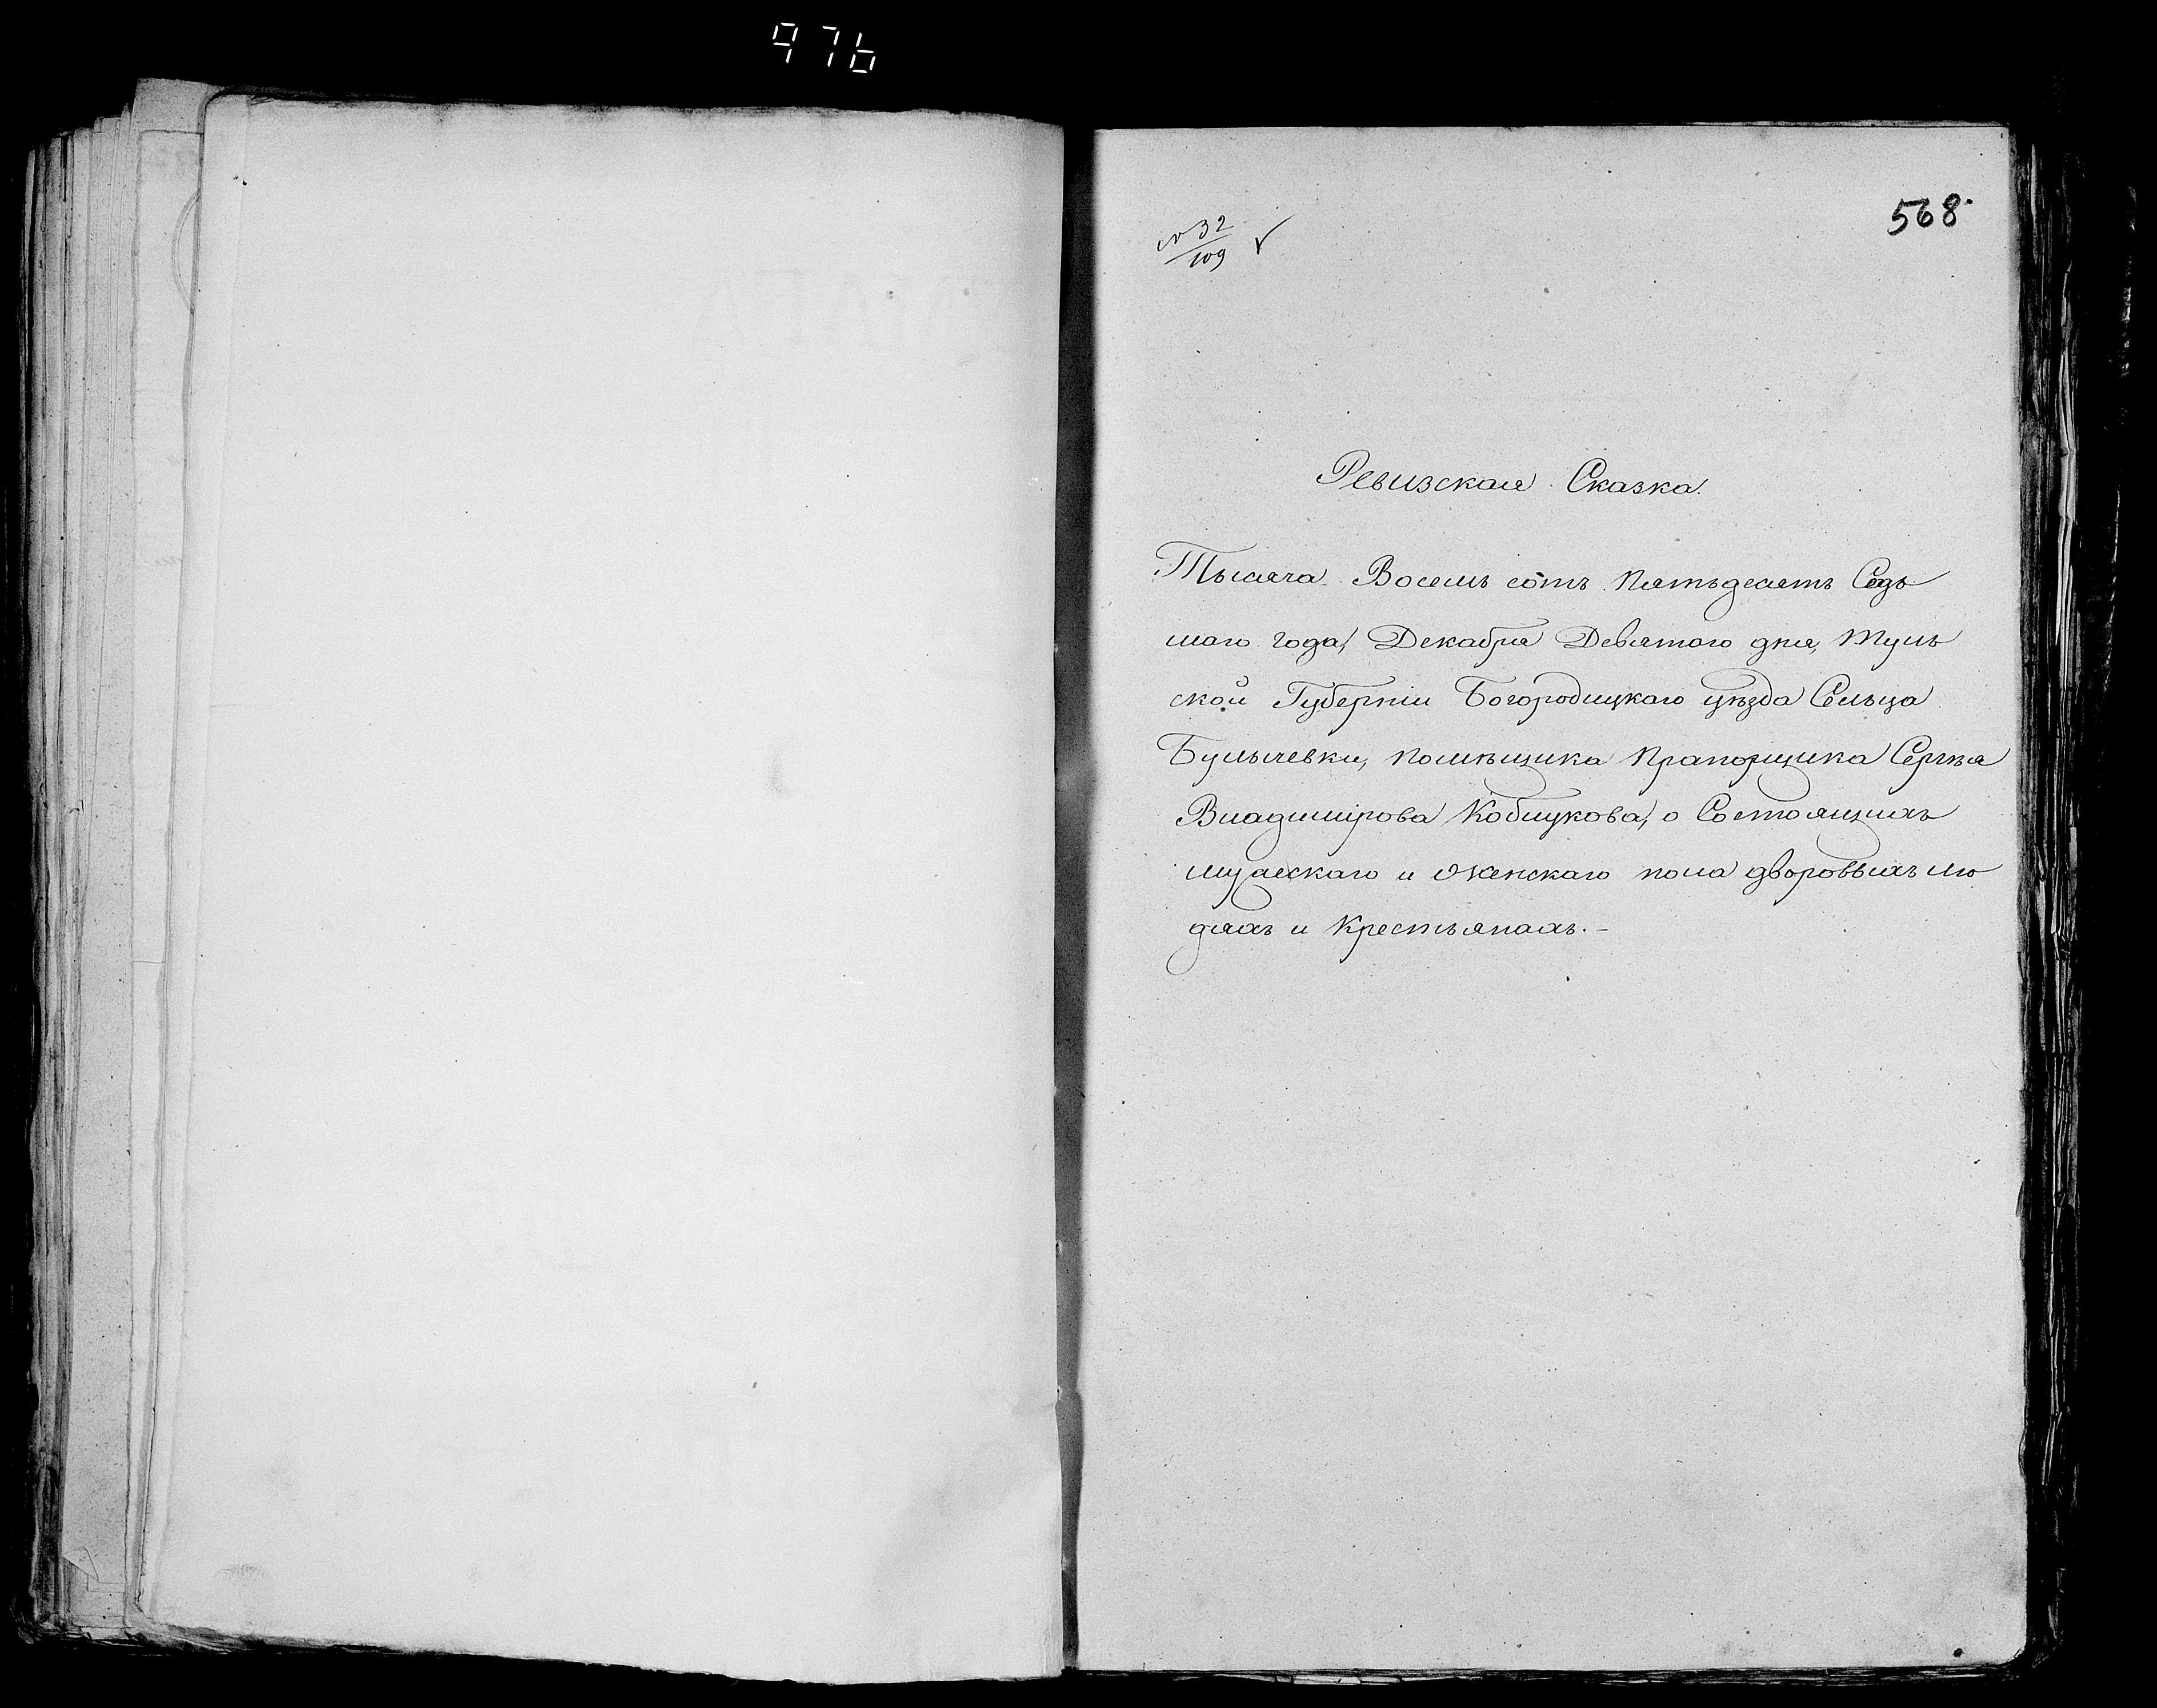 976
568.
№ 32
109
Ревизская Сказка.
Тысяча Восемь сотъ Пятьдесятъ Седь
маго года, Декабря Девятого дня, Туль
ской Губерніи Богородицкаго уѣзда Сельца
Булычевки, помѣщика Прапорщика Сергѣя
Владимірова Кобцукова, о Состоящихъ
мужескаго и женскаго пола дворовыхъ лю
дяхъ и Крестьянахъ.-